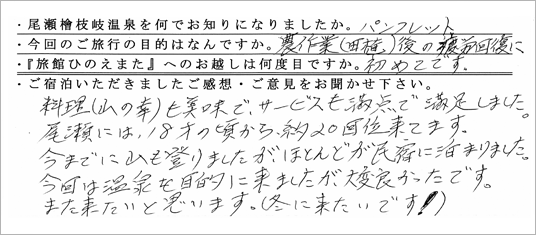 ・尾瀬檜枝岐温泉を何でお知りになりましたか。パンフレット
・今回のご旅行の目的はなんですか。農作業(田植)後の疲労回復に
・『旅館ひのえまた』へのお越しは何度目ですか。初めてです。
・ご宿泊いただきましたご感想・ご意見をお聞かせ下さい。
料理(山の幸)も美味で、サービスも満点で満足しました。
尾瀬には、18才の頃から、約20回位来てます。
今までに山も登りましたがほとんどが民宿に泊まりました。
今回は温泉を目的に来ましたが大変良かったです。
また来たいと思います。(冬に来たいです!)